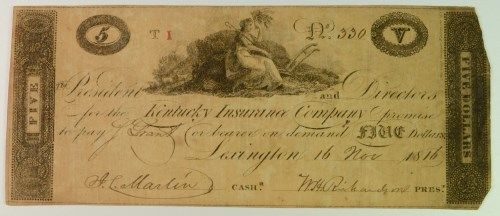 5 T 1 No. 330 V
The President and Directors
for the Kentucky Insurance Company promise
to pay J. Grant or bearer on demand FIVE Dollars
Lexington 16 Nov 1816
A. C. Martin CASHr. W H Richardson PRES!
FIVE
FIVE DOLLARS